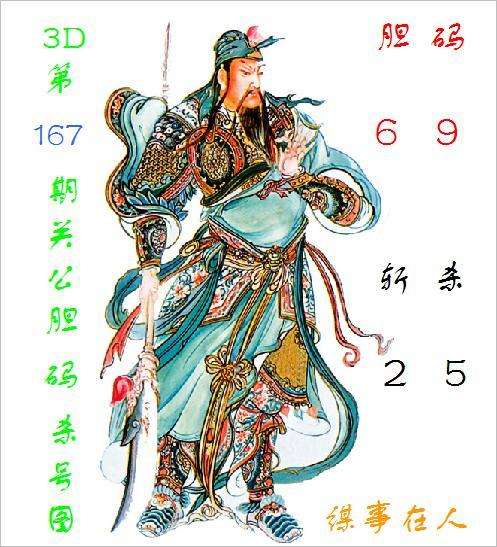 3D
第
167
期关公胆码杀号图
胆码
6 9
斩杀
2 5
谋事在人